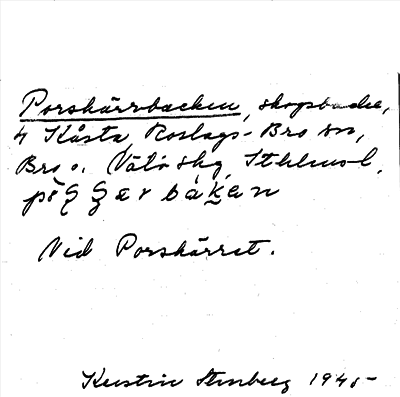 Porskärrbacken, skogsbacke,
4 Kåsta, Roslags-Bro sn,
Bro o. Vätö skg, Sthlms l.
Vid Porskärret.
Kerstin Stenberg 1945